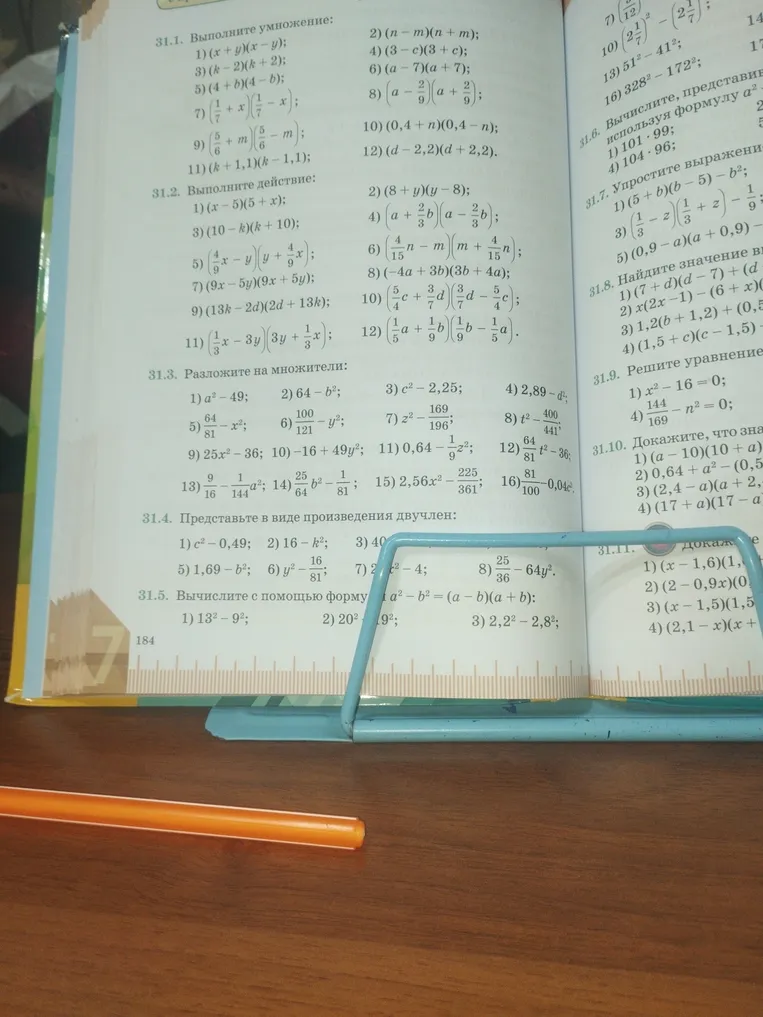 31.1. Выполните умножение:
1) (x + y)(x − y); 2) (n − m)(n + m);
3) (k − 2)(k + 2); 4) (3 − c)(3 + c);
5) (4 + b)(4 − b); 6) (a − 7)(a + 7);
7) (1/7 + x)(1/7 − x); 8) (a − 2/9)(a + 2/9);
9) (5/6 + m)(5/6 − m); 10) (0,4 + n)(0,4 − n);
11) (k + 1,1)(k − 1,1); 12) (d − 2,2)(d + 2,2).
31.2. Выполните действие:
1) (x − 5)(5 + x); 2) (8 + y)(y − 8);
3) (10 − k)(k + 10); 4) (a + 2/3 b)(a − 2/3 b);
5) (4/9 x − y)(y + 4/9 x); 6) (4/15 n − m)(m + 4/15 n);
7) (9x − 5y)(9x + 5y); 8) (−4a + 3b)(3b + 4a);
9) (13k − 2d)(2d + 13k); 10) (5/4 c + 3/7 d)(3/7 d − 5/4 c);
11) (1/3 x − 3y)(3y + 1/3 x); 12) (1/5 a + 1/9 b)(1/9 b − 1/5 a).
31.3. Разложите на множители:
1) a² − 49; 2) 64 − b²; 3) c² − 2,25; 4) 2,89 − d²;
5) 64/81 − x²; 6) 100/121 − y²; 7) z² − 169/196; 8) t² − 400/441;
9) 25x² − 36; 10) −16 + 49y²; 11) 0,64 − 1/9 z²; 12) 64/81 t² − 36;
13) 9/16 − 1/144 a²; 14) 25/64 b² − 1/81; 15) 2,56x² − 225/361; 16) 81/100 − 0,04c².
31.4. Представьте в виде произведения двучлен:
1) c² − 0,49; 2) 16 − k²; 3) 40
5) 1,69 − b²; 6) y² − 16/81; 7) 2 x² − 4; 8) 25/36 − 64y².
31.5. Вычислите с помощью форму a² − b² = (a − b)(a + b):
1) 13² − 9²; 2) 20² 9²; 3) 2,2² − 2,8²;
184
7
7)
10) (2 1/7)² − (2 1/7)²;
13) 51² − 41²; 14
16) 328² − 172²; 17
31.6. Вычислите, представив
используя формулу a²
1) 101 · 99;
4) 104 · 96;
31.7. Упростите выражени
1) (5 + b)(b − 5) − b²;
3) (1/3 − z)(1/3 + z) − 1/9;
5) (0,9 − a)(a + 0,9) −
31.8. Найдите значение в
1) (7 + d)(d − 7) + (d
2) x(2x − 1) − (6 + x)(
3) 1,2(b + 1,2) + (0,5
4) (1,5 + c)(c − 1,5)
31.9. Решите уравнение
1) x² − 16 = 0;
4) 144/169 − n² = 0;
31.10. Докажите, что зна
1) (a − 10)(10 + a)
2) 0,64 + a² − (0,5
3) (2,4 − a)(a + 2,
4) (17 + a)(17 − a
31.11. Докажите
1) (x − 1,6)(1,
2) (2 − 0,9x)(0
3) (x − 1,5)(1,5
4) (2,1 − x)(x +